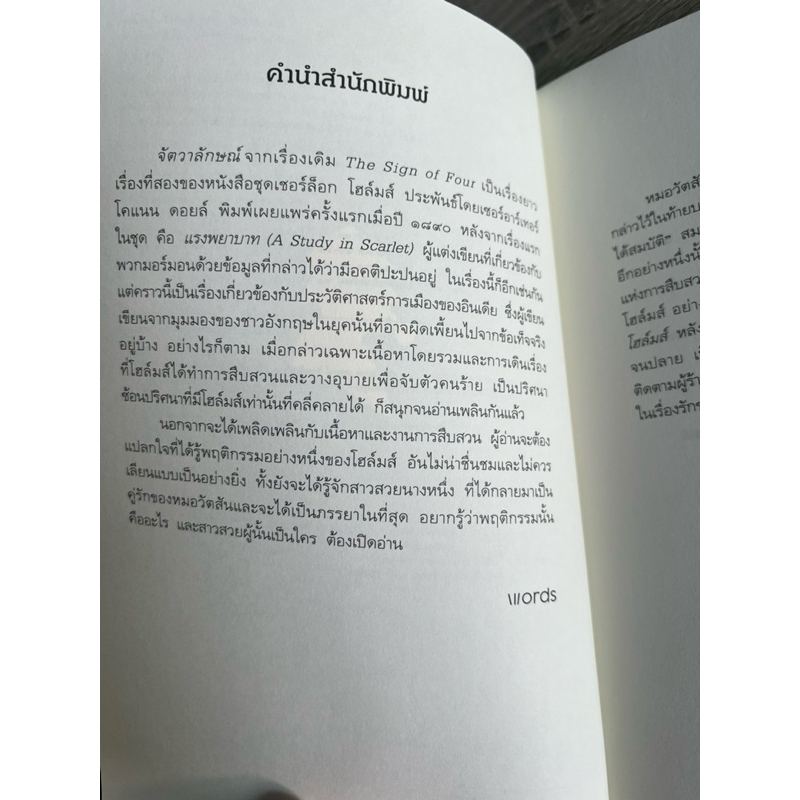 คำนำสำนักพิมพ์
จัตวาลักษณ์ จากเรื่องเดิม The Sign of Four เป็นเรื่องยาว
เรื่องที่สองของหนังสือชุดเชอร์ล็อก โฮล์มส์ ประพันธ์โดยเซอร์อาร์เทอร์
โคแนน ดอยล์ พิมพ์เผยแพร่ครั้งแรกเมื่อปี ๑๘๙๐ หลังจากเรื่องแรก
ในชุด คือ แรงพยาบาท (A Study in Scarlet) ผู้แต่งเขียนที่เกี่ยวข้องกับ
พวกมอร์มอนด้วยข้อมูลที่กล่าวได้ว่ามีอคติปะปนอยู่ ในเรื่องนี้ก็อีกเช่นกัน
แต่คราวนี้เป็นเรื่องเกี่ยวข้องกับประวัติศาสตร์การเมืองของอินเดีย ซึ่งผู้เขียน
เขียนจากมุมมองของชาวอังกฤษในยุคนั้นที่อาจผิดเพี้ยนไปจากข้อเท็จจริง
อยู่บ้าง อย่างไรก็ตาม เมื่อกล่าวเฉพาะเนื้อหาโดยรวมและการเดินเรื่อง
ที่โฮล์มส์ได้ทำการสืบสวนและวางอุบายเพื่อจับตัวคนร้าย เป็นปริศนา
ซ้อนปริศนาที่มีโฮล์มส์เท่านั้นที่คลี่คลายได้ ก็สนุกจนอ่านเพลินกันแล้ว
นอกจากจะได้เพลิดเพลินกับเนื้อหาและงานการสืบสวน ผู้อ่านจะต้อง
แปลกใจที่ได้รู้พฤติกรรมอย่างหนึ่งของโฮล์มส์ อันไม่น่าชื่นชมและไม่ควร
เลียนแบบเป็นอย่างยิ่ง ทั้งยังจะได้รู้จักสาวสวยนางหนึ่ง ที่ได้กลายมาเป็น
คู่รักของหมอวัตสันและจะได้เป็นภรรยาในที่สุด อยากรู้ว่าพฤติกรรมนั้น
คืออะไร และสาวสวยผู้นั้นเป็นใคร ต้องเปิดอ่าน
words
หมอวัตสั
กล่าวไว้ในท้ายบ
ได้สมบัติ" สม
อีกอย่างหนึ่งนั้
แห่งการสืบสว
โฮล์มส์ อย่า
โฮล์มส์ หลัง
จนปลาย เ
ติดตามผู้ร้า
ในเรื่องรัก